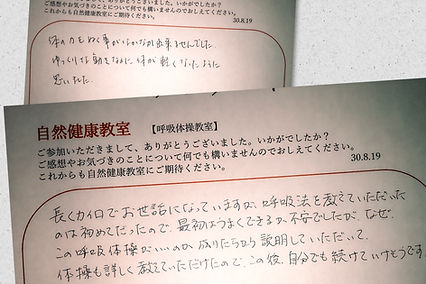 ございました。いかがでしたか？
ご感想やお気づきのことについて何でも構いませんのでおしえてください。
これからも自然健康教室にご期待ください。
30.8.19
体の力をぬく事がなかなか出来ませんでした
ゆっくりな動きなのに体が軽くなったように
思いました
自然健康教室 【呼吸体操教室】
ご参加いただきまして、ありがとうございました。いかがでしたか？
ご感想やお気づきのことについて何でも構いませんのでおしえてください。
これからも自然健康教室にご期待ください。
30.8.19
長くカイロでお世話になっていますが、呼吸法を教えていただいた
のは初めてだったので、最初はうまくできるか不安でしたが、なぜ、
この呼吸体操がいいのか 成りたちから説明していただいて、
体操も詳しく教えていただけたので、この後、自分でも続けていけそうです